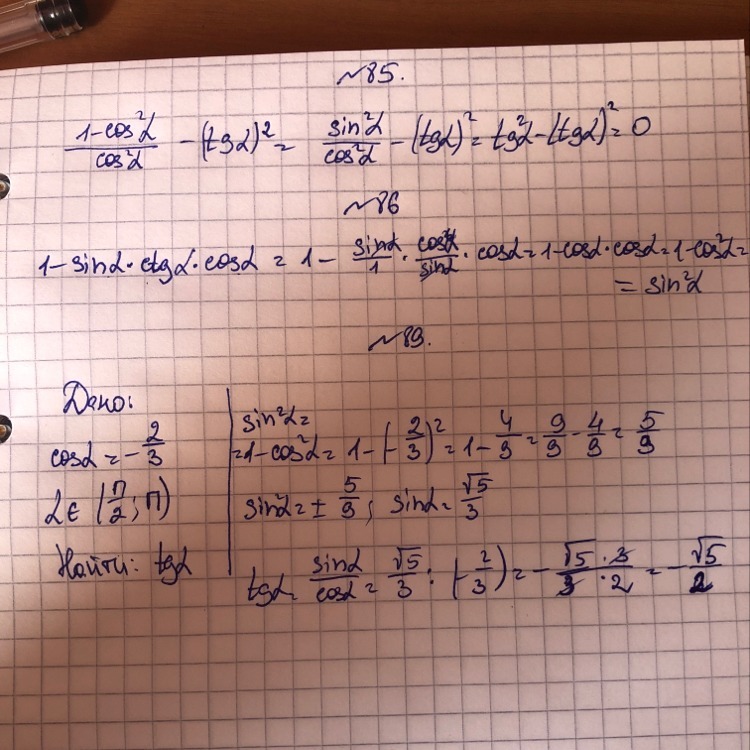 №85.
(1-cos²α)/cos²α - (tgα)² = sin²α/cos²α - (tgα)² = tg²α - (tgα)² = 0
№86
1 - sinα · ctgα · cosα = 1 - sinα/1 · cosα/sinα · cosα = 1 - cosα · cosα = 1 - cos²α =
= sin²α
№89.
Дано:
cosα = -2/3
α ∈ (π/2; π)
Найти: tgα
sin²α =
= 1 - cos²α = 1 - (-2/3)² = 1 - 4/9 = 9/9 - 4/9 = 5/9
sin²α = ± 5/9; sinα = √5/3
tgα = sinα/cosα = √5/3 : (-2/3) = - (√5 · 3)/(3 · 2) = - √5/2